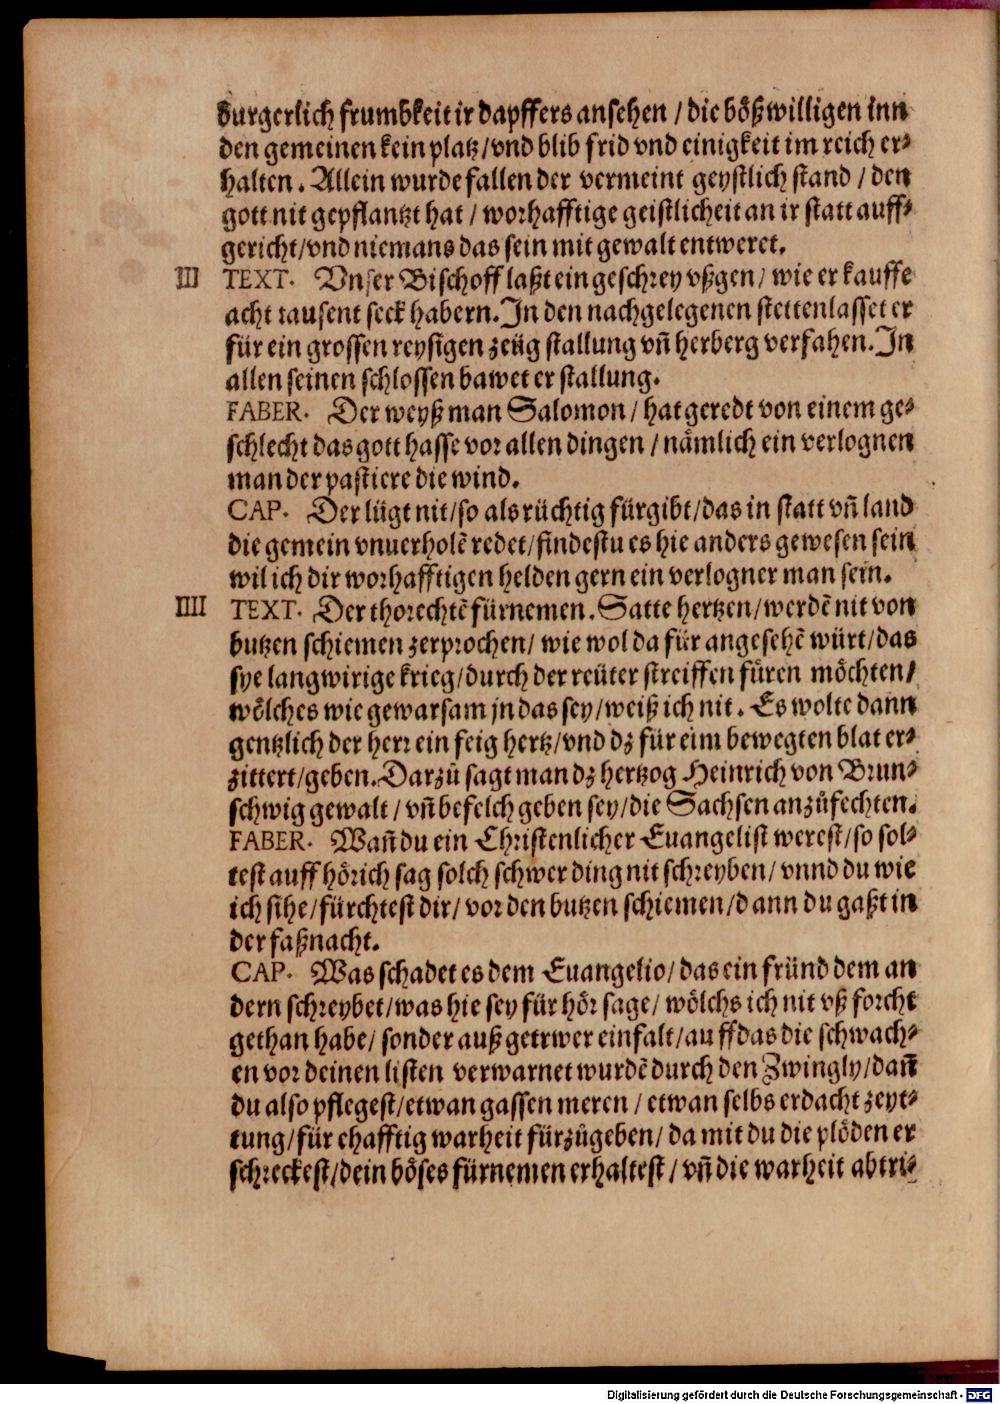 burgerlich frumbkeit ir dapffers ansehen / die bößwilligen inn
den gemeinen kein platz / vnd blib frid vnd einigkeit im reich er⸗
halten. Allein wurde fallen der vermeint geystlich stand / den
gott nit gepflantzt hat / worhafftige geistlicheit an ir statt auff⸗
gericht / vnd niemans das sein mit gewalt entweret.
III TEXT. Vnser Bischoff laßt ein geschrey vßgen / wie er kauffe
acht tausent seck habern. In den nachgelegenen stetten lasset er
für ein grossen reysigen zeüg stallung vñ herberg verfahen. In
allen seinen schlossen bawet er stallung.
FABER. Der weyß man Salomon / hat geredt von einem ge⸗
schlecht das gott hasse vor allen dingen / nämlich ein verlognen
man der pastiere die wind.
CAP. Der lügt nit / so als rüchtig fürgibt / das in statt vñ land
die gemein vnuerholē redet / findestu es hie anders gewesen sein
wil ich dir worhafftigen helden gern ein verlogner man sein.
IIII TEXT. Der thorechtē fürnemen. Satte hertzen / werdē nit von
butzen schiemen zerprochen / wie wol da für angesehē würt / das
sye langwirige krieg / durch der reüter streiffen füren möchten /
wölches wie gewarsam jn das sey / weiß ich nit. Es wolte dann
gentzlich der herr ein feig hertz / vnd dz für eim bewegten blat er⸗
zittert / geben. Darzů sagt man dz hertzog Heinrich von Brun⸗
schwig gewalt / vñ befelch geben sey / die Sachsen anzůfechten.
FABER. Wañ du ein Christenlicher Euangelist werest / so sol⸗
test auff hörich sag solch schwer ding nit schreyben / vnnd du wie
ich sihe / fürchtest dir / vor den butzen schiemen / dann du gaßt in
der faßnacht.
CAP. Was schadet es dem Euangelio / das ein fründ dem an
dern schreybet / was hie sey für hör sage / wölchs ich nit vß forcht
gethan habe / sonder auß getrwer einfalt / auff das die schwach⸗
en vor deinen listen verwarnet wurdē durch den Zwingly / dañ
du also pflegest / etwan gassen meren / etwan selbs erdacht zeyt⸗
tung / für ehafftig warheit fürzůgeben / da mit du die plöden er
schreckest / dein böses fürnemen erhaltest / vñ die warheit abtri⸗
Digitalisierung gefördert durch die Deutsche Forschungsgemeinschaft - DFG